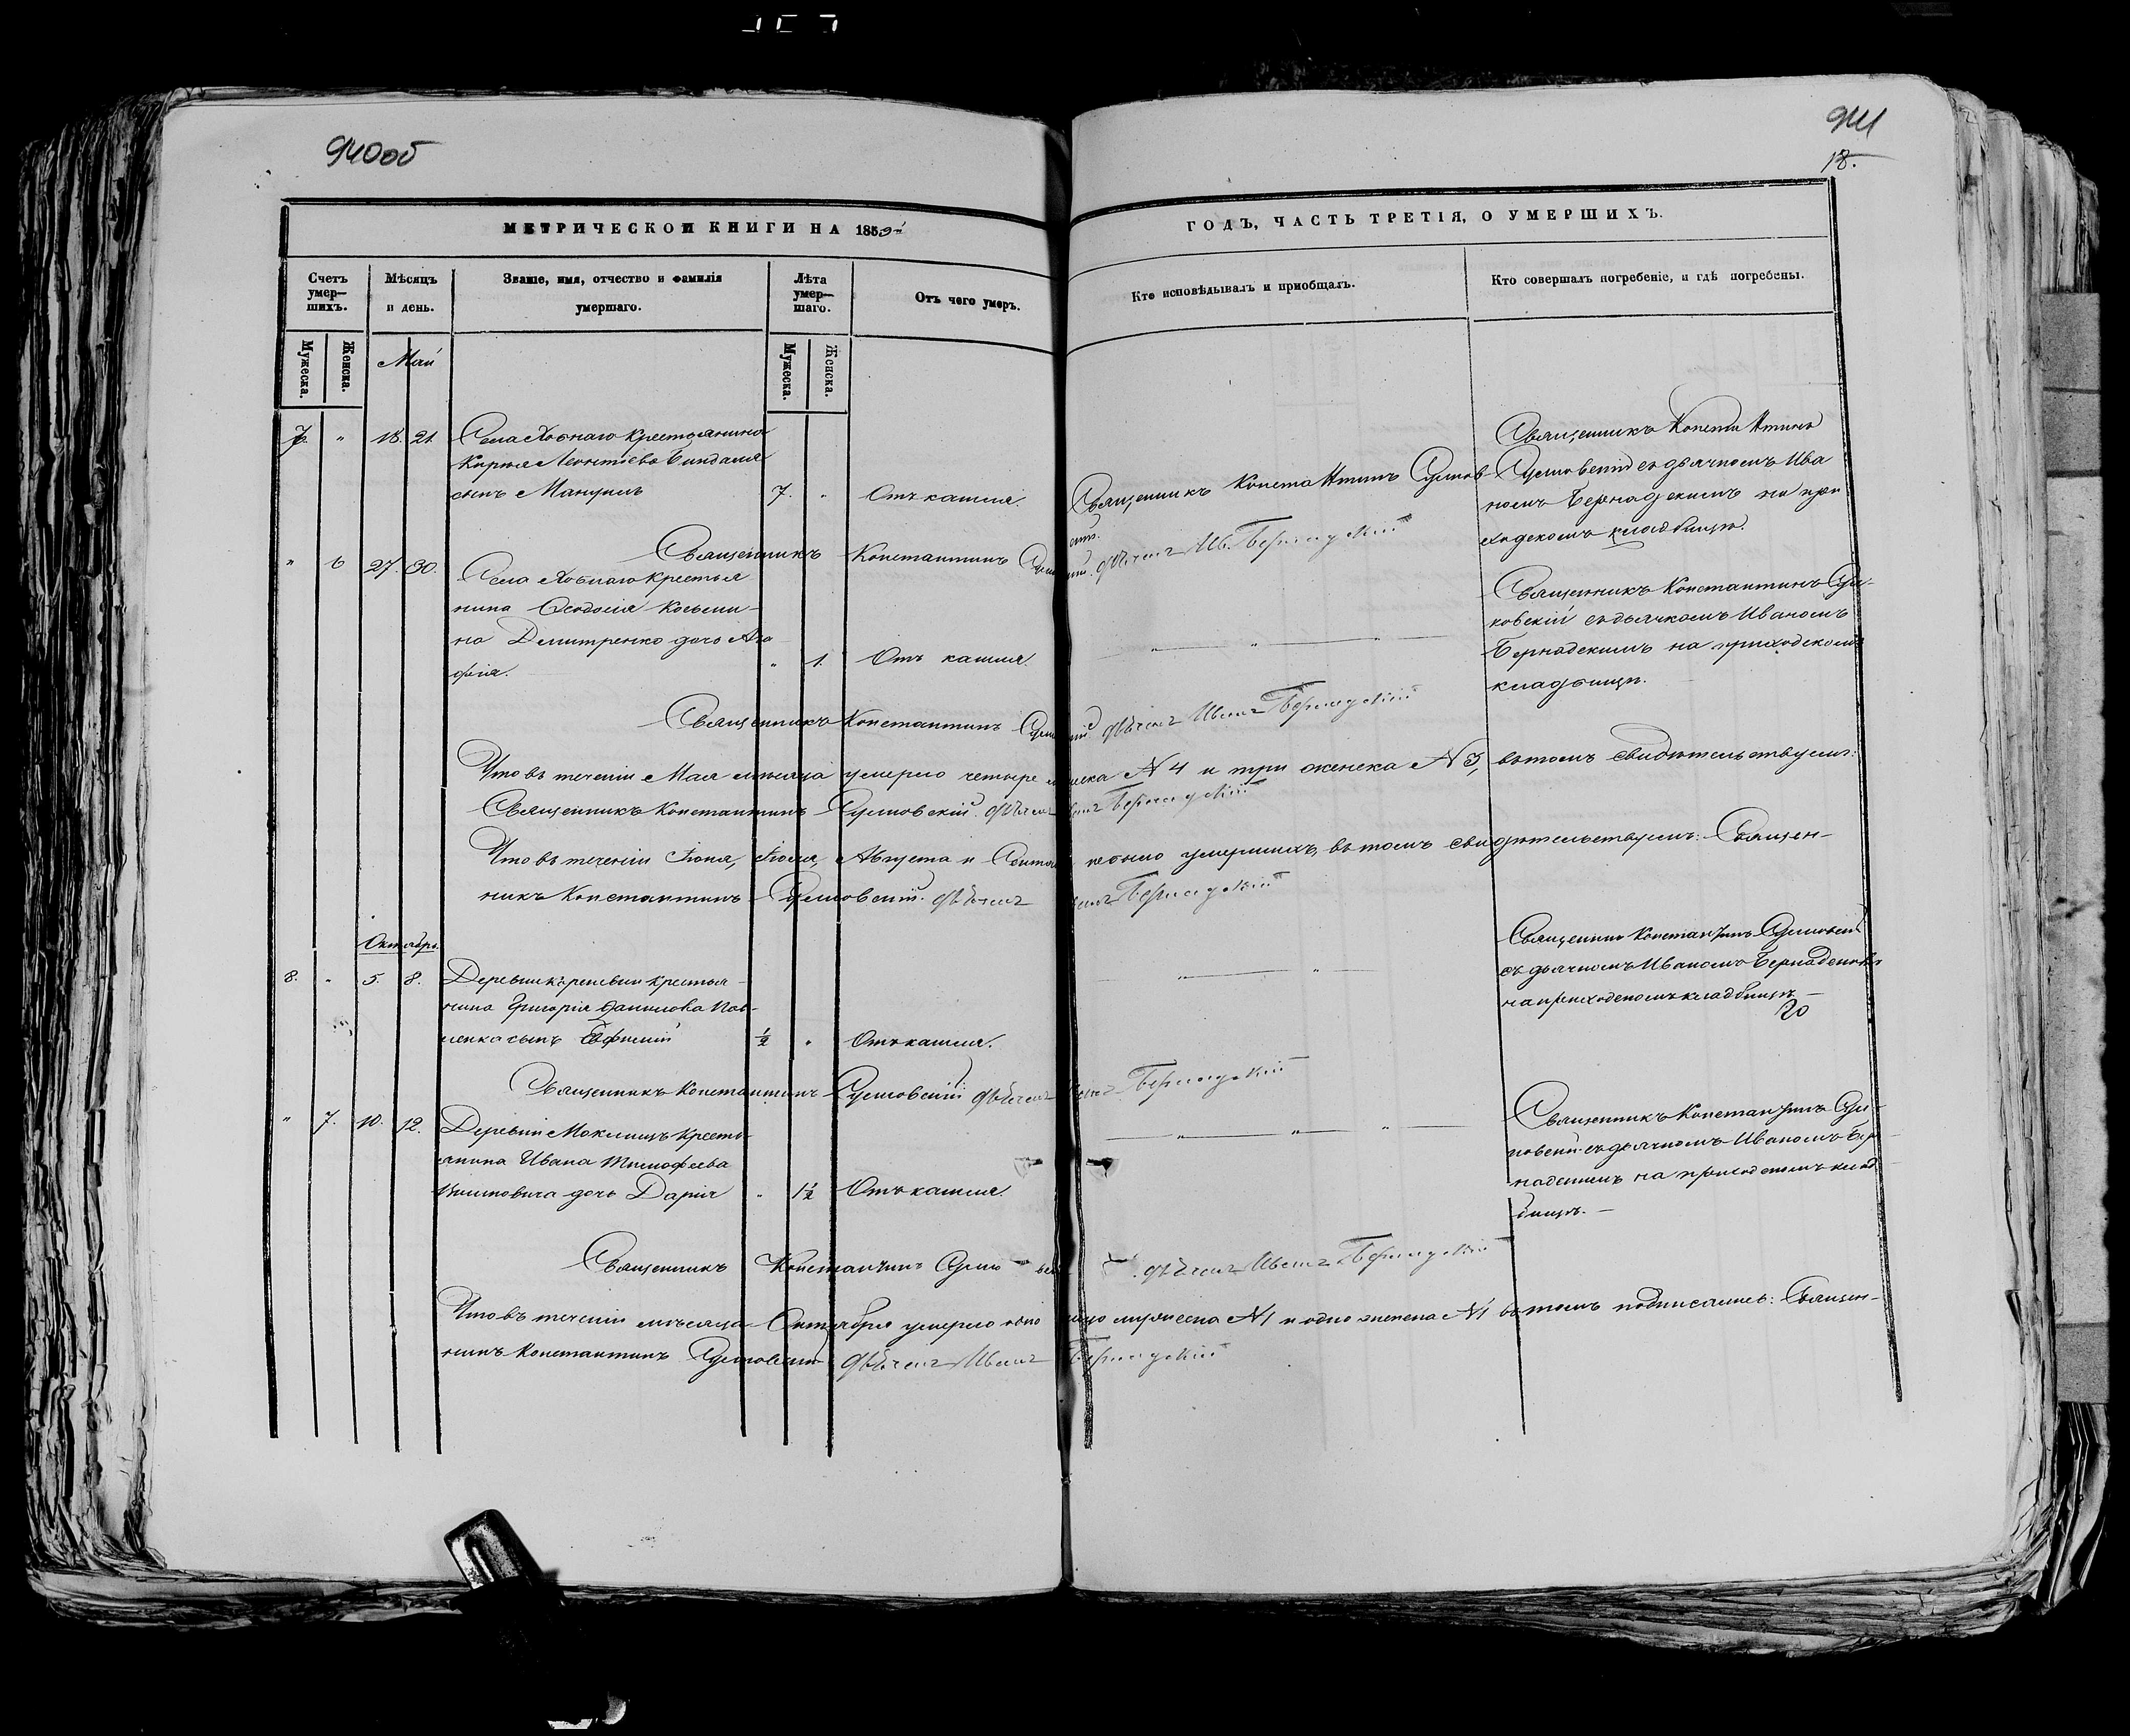 940об
941
18.
МЕТРИЧЕСКОЙ КНИГИ НА 1859й
ГОДЪ, ЧАСТЬ ТРЕТІЯ, О УМЕРШИХЪ.
Счетъ умер-
шихъ.
Мѣсяцъ
и день.
Званіе, имя, отчество и фамилія
умершаго.
Лѣта
умер-
шаго.
Отъ чего умеръ.
Кто исповѣдывалъ и пріобщалъ.
Кто совершалъ погребеніе, и гдѣ погребены.
Мужеска.
Женска.
Мужеска.
Женска.
Май
7. " 18. 21. Села крестьянина
Кирила Леонтіева
сынъ Мануилъ 7. " Отъ кашля.
Священникъ Константинъ
Священникъ Константинъ
съ дьячкомъ Ива
номъ Бернадскимъ на при
ходскомъ кладбищѣ.
Священникъ Константинъ дьячекъ Ив. Бернадскій
" 6 27. 30. Села крестья
нина Ѳеодосія Косьми-
на Дмитренко дочь Ага
фія. " 1. Отъ кашля.
Священникъ Константинъ
съ дьячкомъ Иваномъ
Бернадскимъ на приходскомъ
кладбищѣ.
Священникъ Константинъ дьячекъ Иванъ Бернадскій
Что въ теченіи Мая мѣсяца умерло четыре мужеска N 4 и три женска N 3, въ томъ свидѣтельствуемъ:
Священникъ Константинъ дьячекъ Иванъ Бернадскій
Что въ теченіи Іюня, Іюля, Августа и Сентября небыло умершихъ, въ томъ свидѣтельствуемъ: Священ-
никъ Константинъ дьячекъ Иванъ Бернадскій
Октябрь.
8. " 5. 8. Деревни крестья-
нина Григорія Данилова Пав-
ленка сынъ Ефимій ½ " Отъ кашля.
Священникъ Константинъ
съ дьячкомъ Иваномъ Бернадскимъ
на приходскомъ кладбищѣ.
Священникъ Константинъ дьячекъ Иванъ Бернадскій
" 7. 10. 12. Деревни крестья
янина Ивана Тимофеева
дочь Дарія " 1½ Отъ кашля.
Священникъ Константинъ
съ дьячкомъ Иваномъ Бер
надскимъ на приходскомъ клад
бищѣ.
Священникъ Константинъ дьячекъ Иванъ Бернадскій
Что въ теченіи мѣсяца Октября умерло одно мужеска N 1 и одно женска N 1 въ томъ подписались: Священ-
никъ Константинъ дьячекъ Иванъ Бернадскій